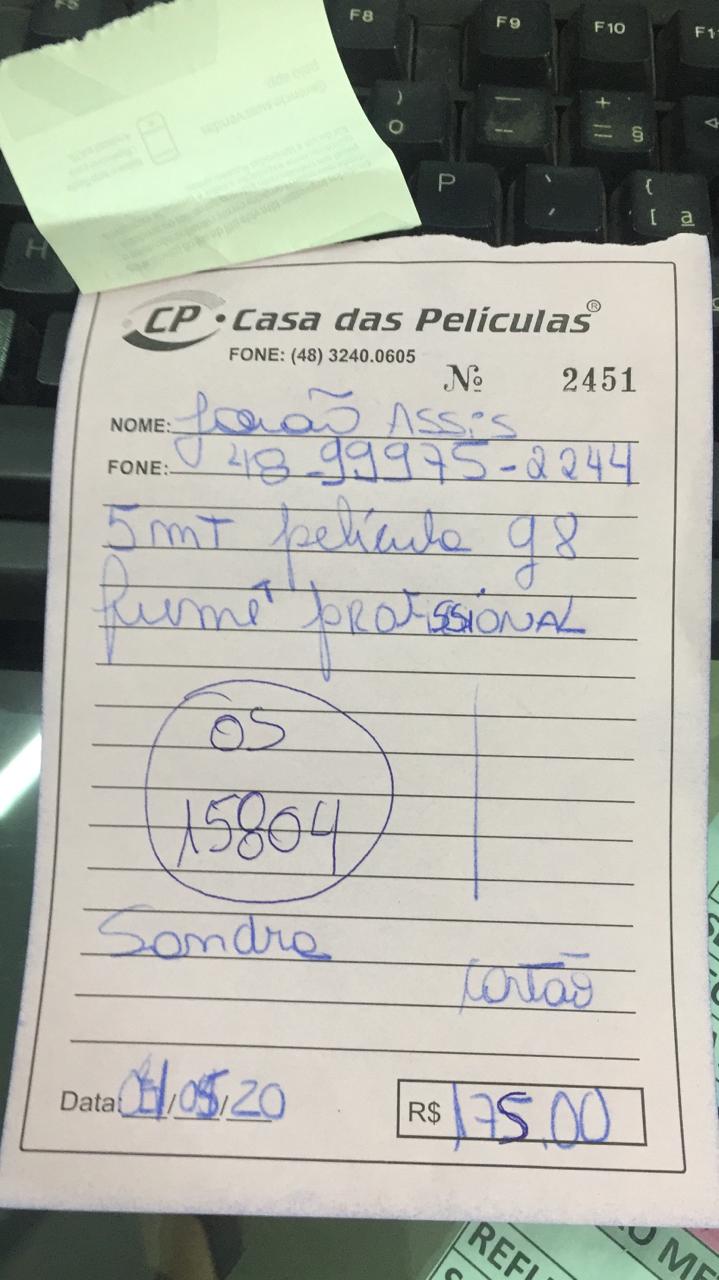 F8
F9
F10
CP · Casa das Películas®
FONE: (48) 3240.0605
Nº 2451
NOME: Assis
FONE: 48 99975-2244
5mT película g8
fumê profissional
OS
15804
Sandra
Cartão
Data: /05/20
R$ 175,00
REFL